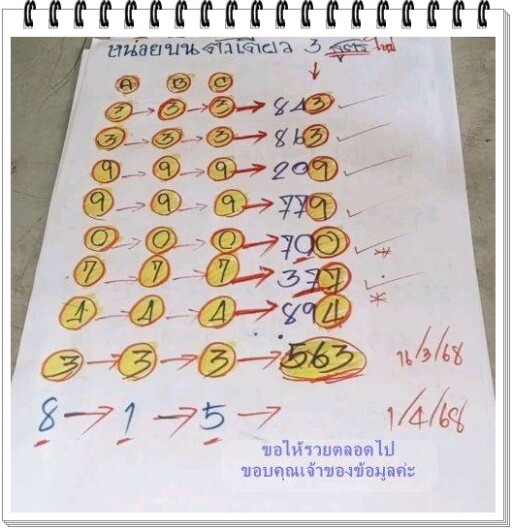 หน่วยบน ตัวเดียว 3 สูตร ใหม่
A B C
3 → 3 → 3 → 843
3 → 3 → 3 → 863
9 → 9 → 9 → 209
9 → 9 → 9 → 779
0 → 0 → 0 → 700
7 → 7 → 7 → 377
4 → 4 → 4 → 894
3 → 3 → 3 → 563 16/3/68
8 → 1 → 5 → 1/4/68
ขอให้รวยตลอดไป
ขอบคุณเจ้าของข้อมูลค่ะ